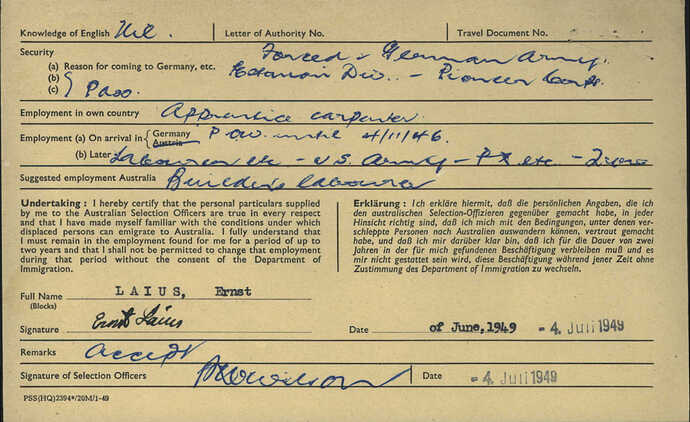 Knowledge of English Nil Letter of Authority No. Travel Document No.
Security Forced - German Army.
(a) Reason for coming to Germany, etc. Estonian Div. - Pioneer Corps
(b)
(c) Pass.
Employment in own country Apprentice carpenter
Employment (a) On arrival in { Germany P.O.W. until 4/11/46.
Austria
(b) Later Labourer etc - U.S. Army - PX etc -
Suggested employment Australia Builder's labourer
Undertaking : I hereby certify that the personal particulars supplied
by me to the Australian Selection Officers are true in every respect
and that I have made myself familiar with the conditions under which
displaced persons can emigrate to Australia. I fully understand that
I must remain in the employment found for me for a period of up to
two years and that I shall not be permitted to change that employment
during that period without the consent of the Department of
Immigration.
Erklärung : Ich erkläre hiermit, daß die persönlichen Angaben, die ich
den australischen Selection-Offizieren gegenüber gemacht habe, in jeder
Hinsicht richtig sind, daß ich mich mit den Bedingungen, unter denen ver-
schleppte Personen nach Australien auswandern können, vertraut gemacht
habe, und daß ich mir darüber klar bin, daß ich für die Dauer von zwei
Jahren in der für mich gefundenen Beschäftigung verbleiben muß und es
mir nicht gestattet sein wird, diese Beschäftigung während jener Zeit ohne
Zustimmung des Department of Immigration zu wechseln.
Full Name LAIUS, Ernst
(Blocks)
Signature Ernst Laius Date of June, 1949 - 4. Juli 1949
Remarks accept
Signature of Selection Officers Date - 4. Juli 1949
PSS(HQ)2394*/20M/1-49